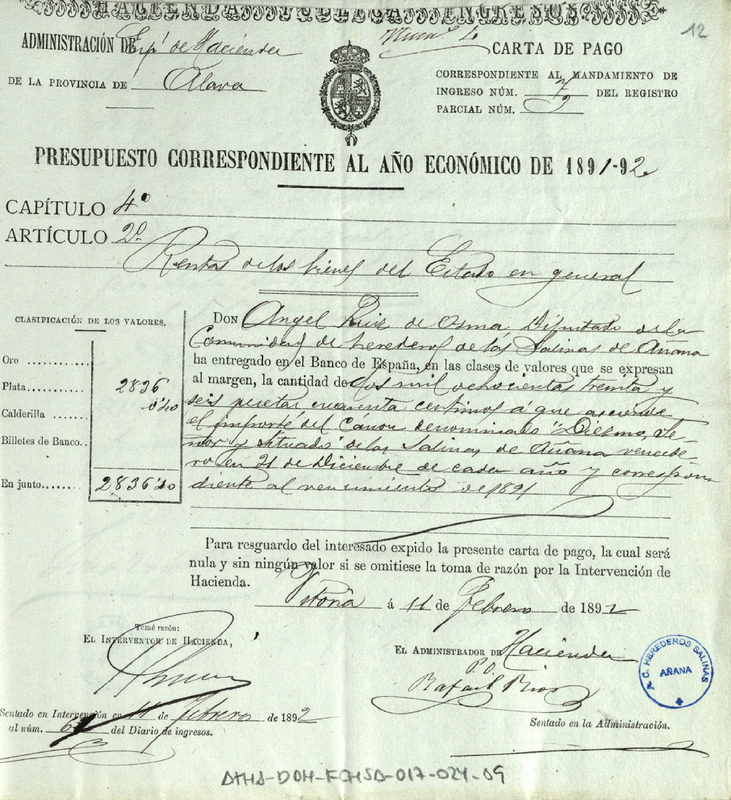 HACIENDA PÚBLICA INGRESOS
12
ADMINISTRACIÓN DE Espl de Hacienda
DE LA PROVINCIA DE Alava
CARTA DE PAGO
CORRESPONDIENTE AL MANDAMIENTO DE
INGRESO NÚM. DEL REGISTRO
PARCIAL NÚM.
PRESUPUESTO CORRESPONDIENTE AL AÑO ECONÓMICO DE 1891-92
CAPÍTULO 4º
ARTÍCULO 2º
Rentas de los bienes del Estado en general
CLASIFICACIÓN DE LOS VALORES.
Oro
Plata 2836
Calderilla 0'40
Billetes de Banco
En junto 2836'40
DON Angel Ruiz de Osma, Diputado de la
Comunidad de herederos de las Salinas de Añana
ha entregado en el Banco de España, en las clases de valores que se expresan
al margen, la cantidad de dos mil ochocientas treinta y
seis pesetas cuarenta centimos á que asciende
el importe del Cánon denominado "Diezmo,
y Situado" de las Salinas de Añana
en 21 de Diciembre de cada año y correspon
diente al vencimiento de 1891
Para resguardo del interesado expido la presente carta de pago, la cual será
nula y sin ningún valor si se omitiese la toma de razón por la Intervención de
Hacienda.
Vitoria á 11 de Febrero de 1892
Tomé razón:
EL INTERVENTOR DE HACIENDA,
EL ADMINISTRADOR DE Hacienda
P.O.
Rafael Rios
A. C. HEREDEROS SALINAS
AÑANA
Sentado en Intervención en 11 de Febrero de 1892
al núm. del Diario de ingresos.
Sentado en la Administración.
ATHA-DOH-FCHSA-017-024-09